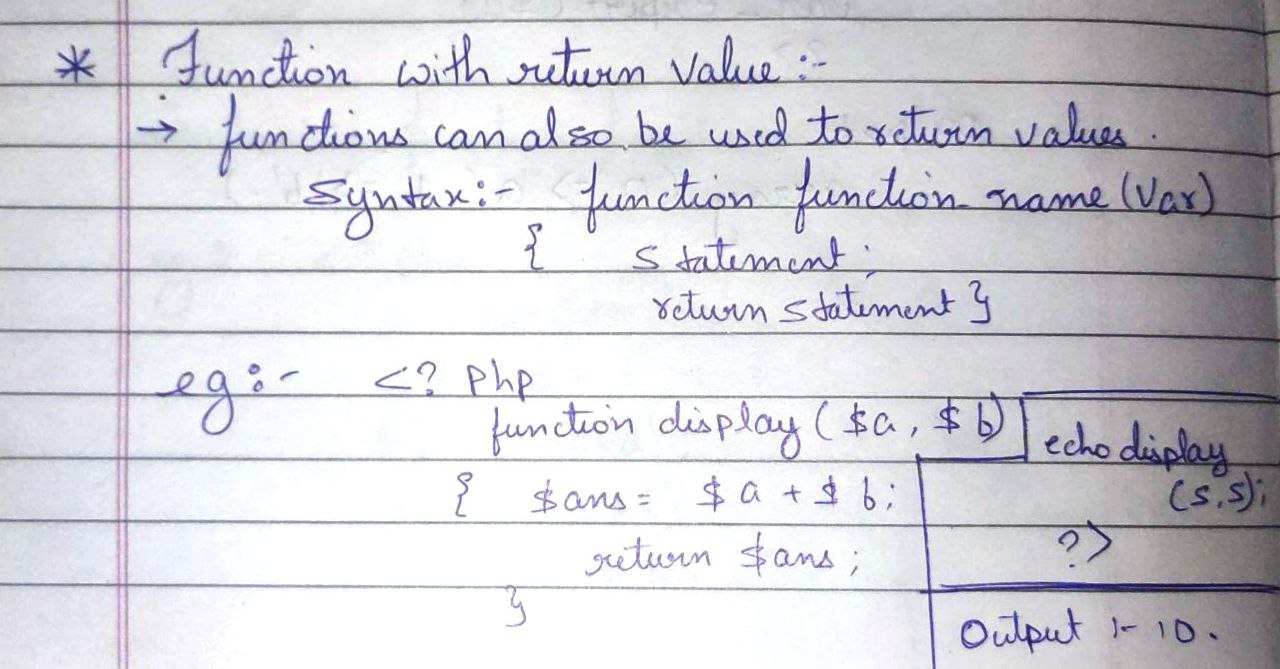 * Function with return value :-
→ functions can also be used to return values.
Syntax:- function function_name (Var)
{ Statement;
return statement }
eg:- <? php
function display ($a, $b)
{ $ans = $a + $b;
return $ans;
}
echo display
(5,5);
?>
Output :- 10.